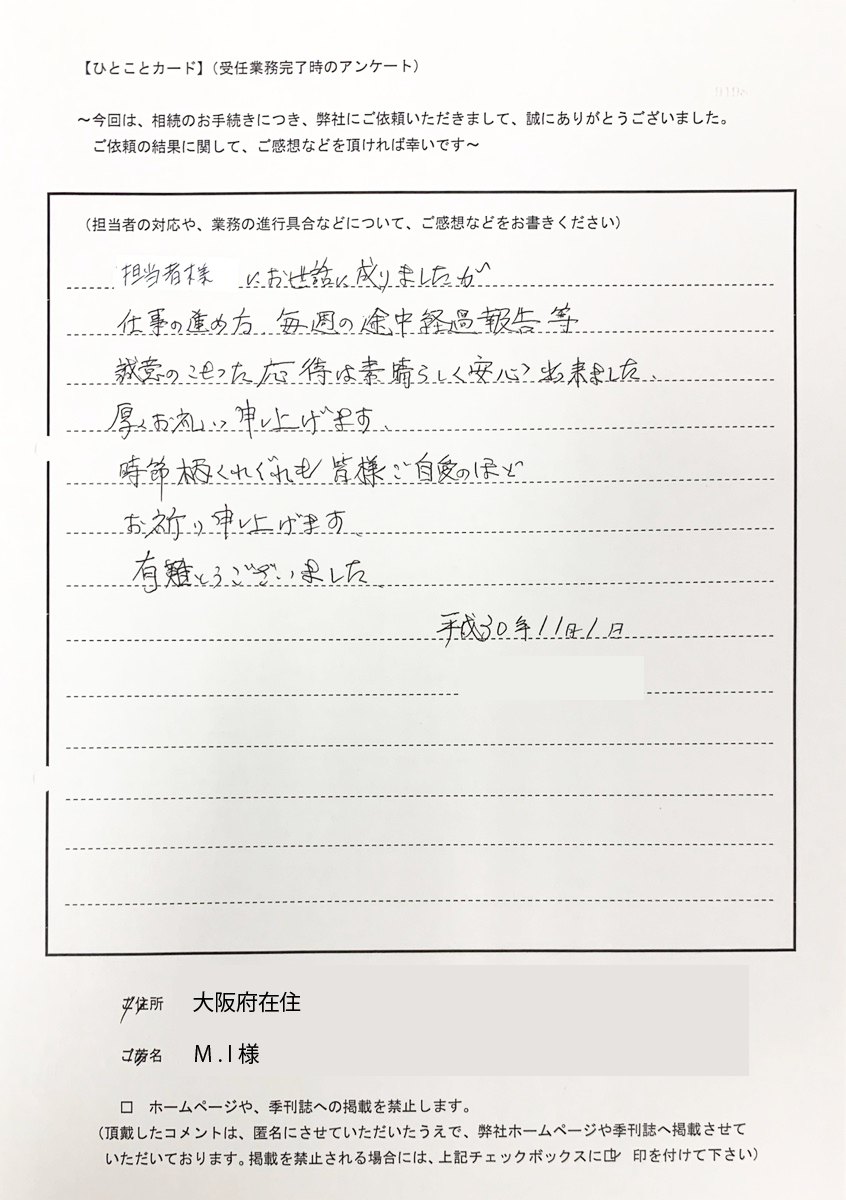 【ひとことカード】（受任業務完了時のアンケート）
～今回は、相続のお手続きにつき、弊社にご依頼いただきまして、誠にありがとうございました。
ご依頼の結果に関して、ご感想などを頂ければ幸いです～
（担当者の対応や、業務の進行具合などについて、ご感想などをお書きください）
担当者様 にお世話に成りましたが
仕事の進め方、毎週の途中経過報告等
誠意のこもった応待は素晴らしく安心出来ました、
厚くお礼申し上げます、
時節柄くれぐれも皆様ご自愛のほど
お祈り申し上げます、
有難とうございました、
平成30年11月1日
ご住所 大阪府在住
ご芳名 M.I様
□ ホームページや、季刊誌への掲載を禁止します。
（頂戴したコメントは、匿名にさせていただいたうえで、弊社ホームページや季刊誌へ掲載させて
いただいております。掲載を禁止される場合には、上記チェックボックスに☑ 印を付けて下さい）